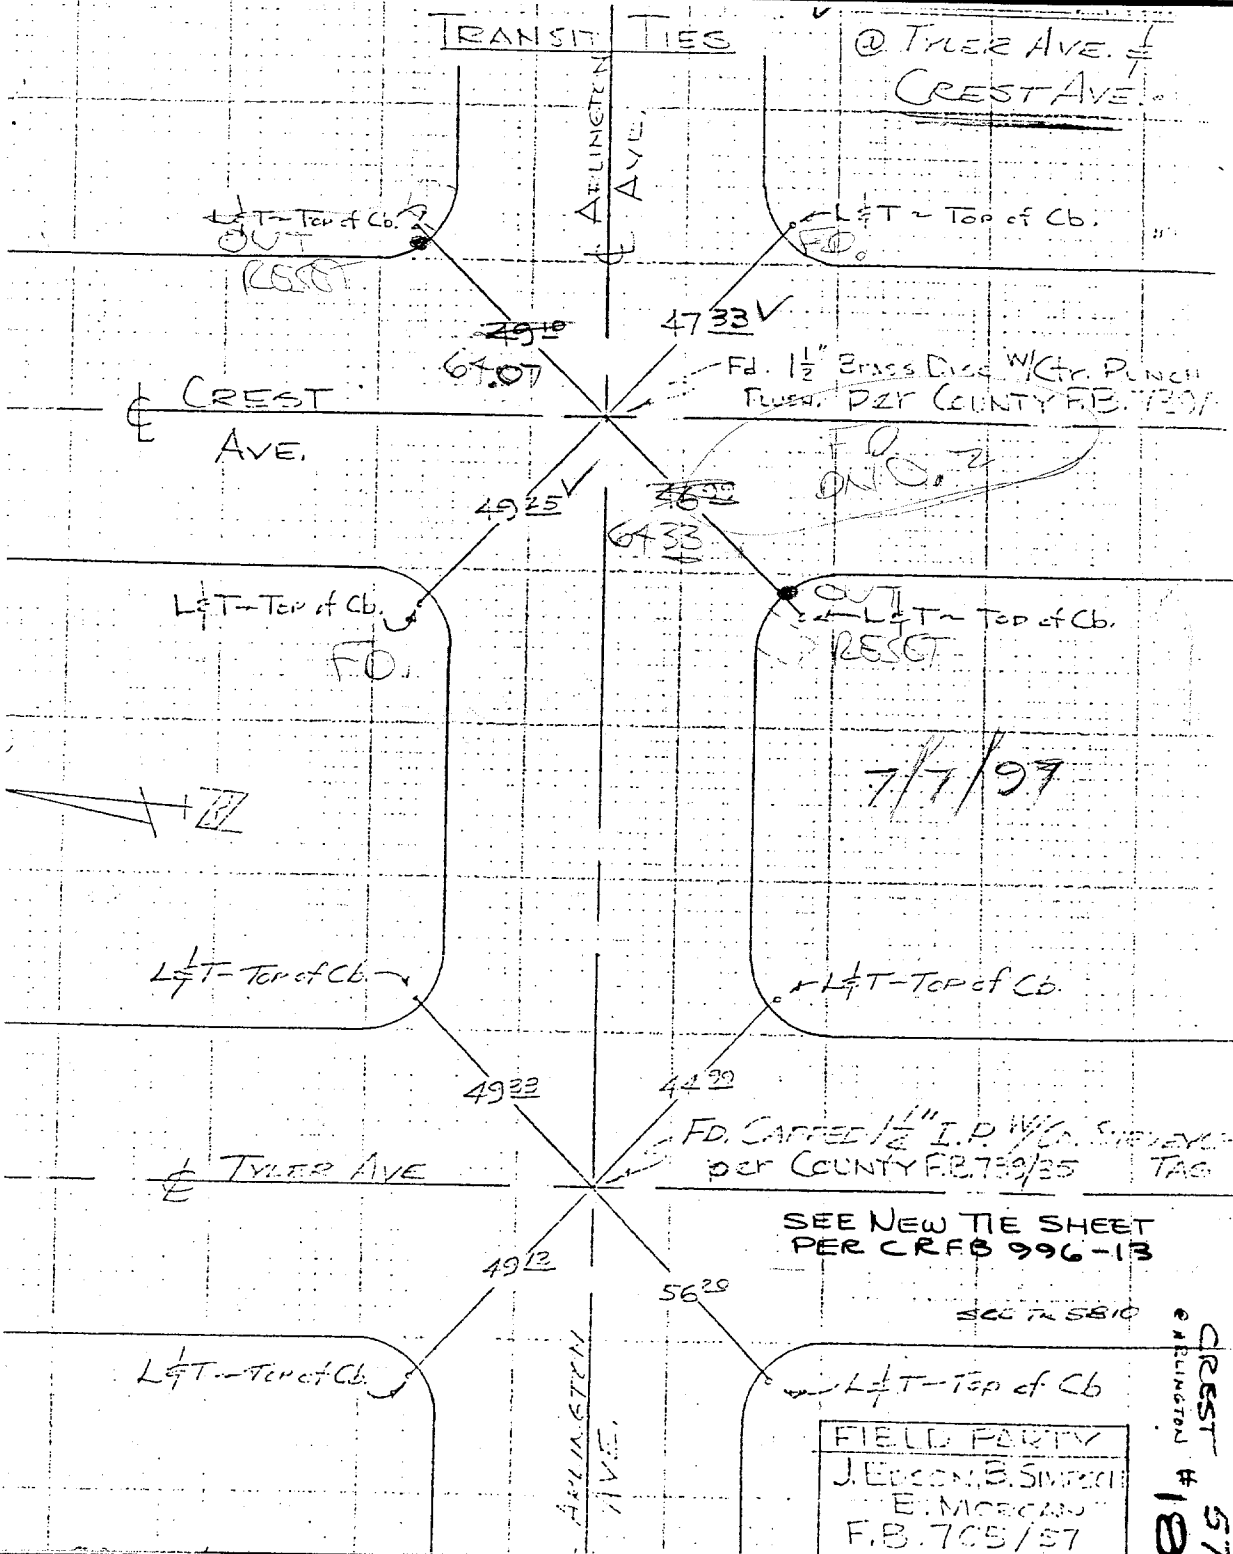 TRANSIT TIES
@ TYLER AVE. &
CREST AVE.
℄ ARLINGTON
AVE.
L&T ~ Top of Cb.
OUT
RESET
L&T ~ Top of Cb.
FD.
49 10
64.07
47 33 ✓
Fd. 1 1/2" Brass Disc W/Ctr. Punch
Flush. per COUNTY F.B.
FD
DN 0.2
℄ CREST
AVE.
49 25 ✓
64 33
L&T ~ Top of Cb.
FD.
OUT
L&T ~ Top of Cb.
RESET
7/7/97
L&T - Top of Cb.
L&T - Top of Cb.
49 33
44 99
FD. CAPPED 1 1/2" I.P. W/Co.
per COUNTY F.B. 739/35 TAG
℄ TYLER AVE
SEE NEW TIE SHEET
PER CRFB 996-13
49 13
56 20
SEE TM 5810
L&T - Top of Cb.
L&T - Top of Cb
ARLINGTON
AVE.
FIELD PARTY
J. EDSON, B. SIMPSON
E. MORGAN
F.B. 705/57
CREST 57
@ ARLINGTON #18